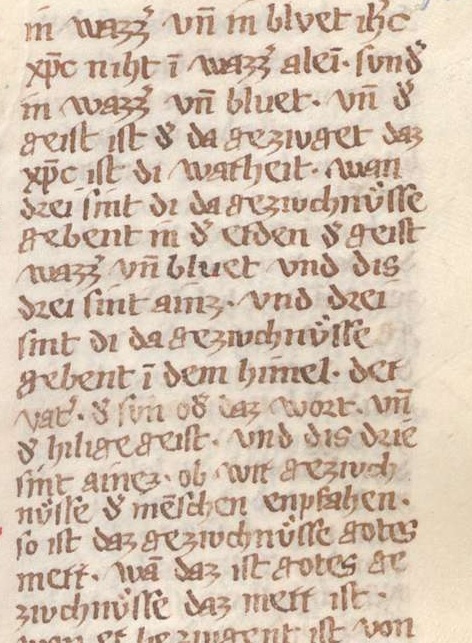 in wazzˀ vn̄ in blvet ih̄c
xp̄c niht ī wazzˀ aleī · svndˀ
in wazzˀ vn̄ bluet · vn̄ dˀ
geist ist dˀ da geziuget daz
xp̄c ist di warheit · wan
drei sint di da geziuchnüsse
gebent in dˀ erden dˀ geist
wazzˀ vn̄ bluet vnd dis
drei sint ainz · vnd drei
sint di da geziuchnüsse
gebent ī dem himel · der
vatˀ · dˀ svn odˀ daz wort · vn̄
dˀ hilige geist · vnd dis drie
sint ainez · ob wir geziuch
nüsse dˀ mēschen enpfahen ·
so ist daz geziuchnüsse gotes
merr · wā daz ist gotes ge
ziuchnüsse daz merr ist ·
ist von